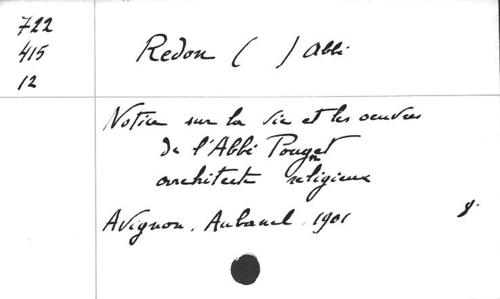 722
415
12
Redon ( ) Abbé
Notice sur la vie et les oeuvres
de l'Abbé Pougnet
architecte religieux
Avignon. Aubanel. 1901
8.